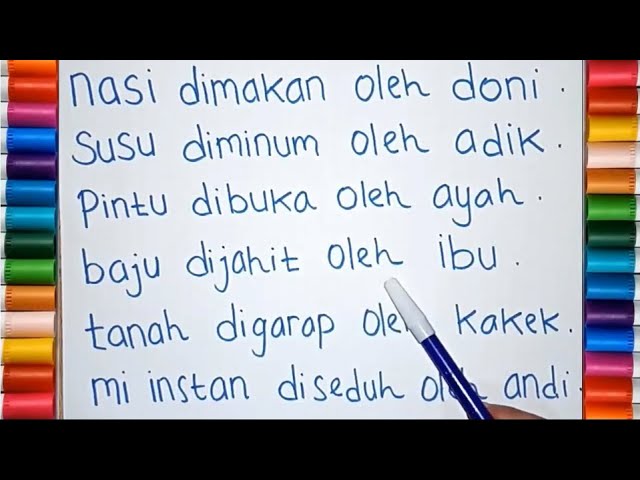 nasi dimakan oleh doni.
susu diminum oleh adik.
pintu dibuka oleh ayah.
baju dijahit oleh ibu.
tanah digarap oleh kakek.
mi instan diseduh oleh andi.